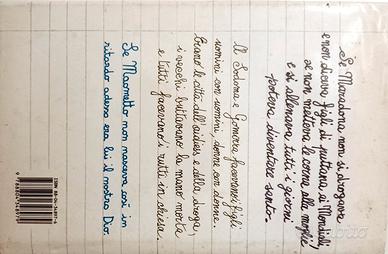 Se Maradona non si drogava
e non diceva figli di puttana, ai Mondiali,
se non metteva le corna alla moglie
e si allenava tutti i giorni
poteva diventare santo.
A Sodoma e Gomorra facevano i figli
uomini con uomini, donne con donne.
Erano le città dell'aidiesse e della droga,
i vecchi buttavano la mano morta
e tutti facevano i rutti in chiesa.
Se Maometto non nasceva così in
ritardo adesso era lui il nostro Dio.
subito